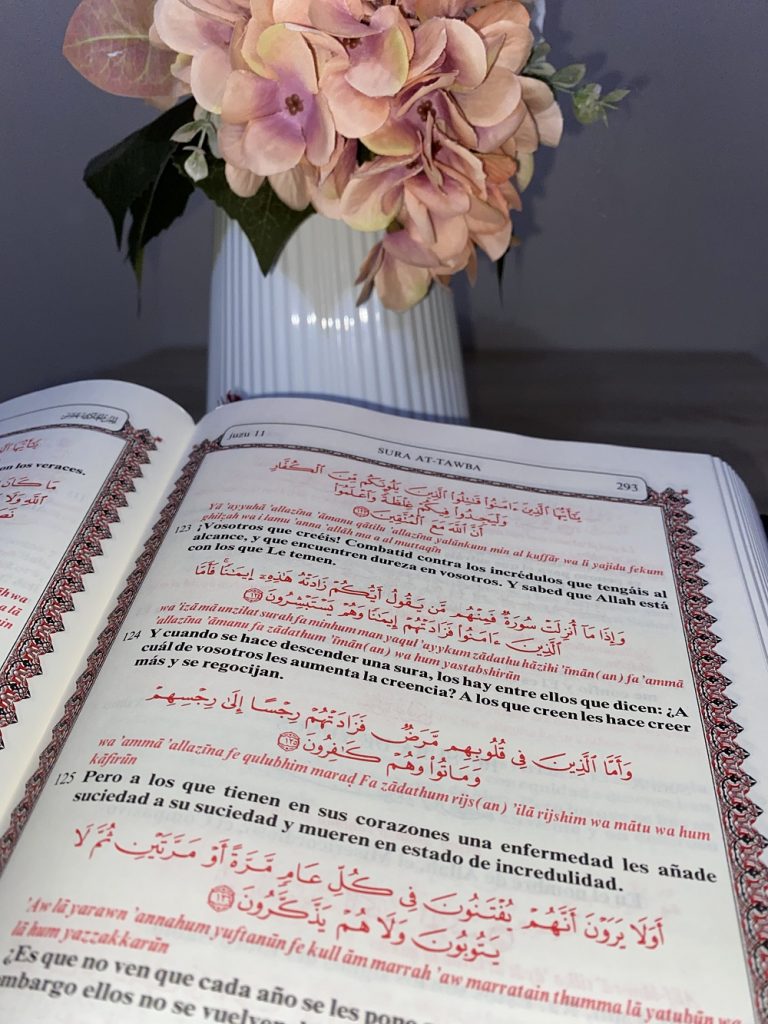 on los veraces.
juzu 11
SURA AT-TAWBA
293
يَٰٓأَيُّهَا ٱلَّذِينَ ءَامَنُوا۟ قَٰتِلُوا۟ ٱلَّذِينَ يَلُونَكُم مِّنَ ٱلْكُفَّارِ
وَلْيَجِدُوا۟ فِيكُمْ غِلْظَةً وَٱعْلَمُوٓا۟
أَنَّ ٱللَّهَ مَعَ ٱلْمُتَّقِينَ ١٢٣
Yā 'ayyuhā 'allazīna 'āmanu qātilu 'allazīna yalūnkum min al kuffār wa li yajidu fekum
ghilẓah wa i lamu 'anna 'allāh ma a al muttaqīn
123 ¡Vosotros que creéis! Combatid contra los incrédulos que tengáis al
alcance, y que encuentren dureza en vosotros. Y sabed que Allah está
con los que Le temen.
وَإِذَا مَآ أُنزِلَتْ سُورَةٌ فَمِنْهُم مَّن يَقُولُ أَيُّكُمْ زَادَتْهُ هَٰذِهِۦٓ إِيمَٰنًا فَأَمَّا
ٱلَّذِينَ ءَامَنُوا۟ فَزَادَتْهُمْ إِيمَٰنًا وَهُمْ يَسْتَبْشِرُونَ ١٢٤
wa 'izā mā unzilat surah fa minhum man yaqul 'ayykum zādathu hāzihi 'īmān(an) fa 'ammā
'allazīna 'āmanu fa zādathum 'īmān(an) wa hum yastabshirūn
124 Y cuando se hace descender una sura, los hay entre ellos que dicen: ¿A
cuál de vosotros les aumenta la creencia? A los que creen les hace creer
más y se regocijan.
وَأَمَّا ٱلَّذِينَ فِى قُلُوبِهِم مَّرَضٌ فَزَادَتْهُمْ رِجْسًا إِلَىٰ رِجْسِهِمْ
وَمَاتُوا۟ وَهُمْ كَٰفِرُونَ ١٢٥
wa 'ammā 'allazīna fe qulubhim maraḍ Fa zādathum rijs(an) 'ilā rijshim wa mātu wa hum
kāfirūn
125 Pero a los que tienen en sus corazones una enfermedad les añade
suciedad a su suciedad y mueren en estado de incredulidad.
أَوَلَا يَرَوْنَ أَنَّهُمْ يُفْتَنُونَ فِى كُلِّ عَامٍ مَّرَّةً أَوْ مَرَّتَيْنِ ثُمَّ لَا
يَتُوبُونَ وَلَا هُمْ يَذَّكَّرُونَ ١٢٦
'Aw lā yarawn 'annahum yuftanūn fe kull ām marrah 'aw marratain thumma lā yatubūn wa
lā hum yazzakkarūn
¿Es que no ven que cada año se les pone
embargo ellos no se vuelven